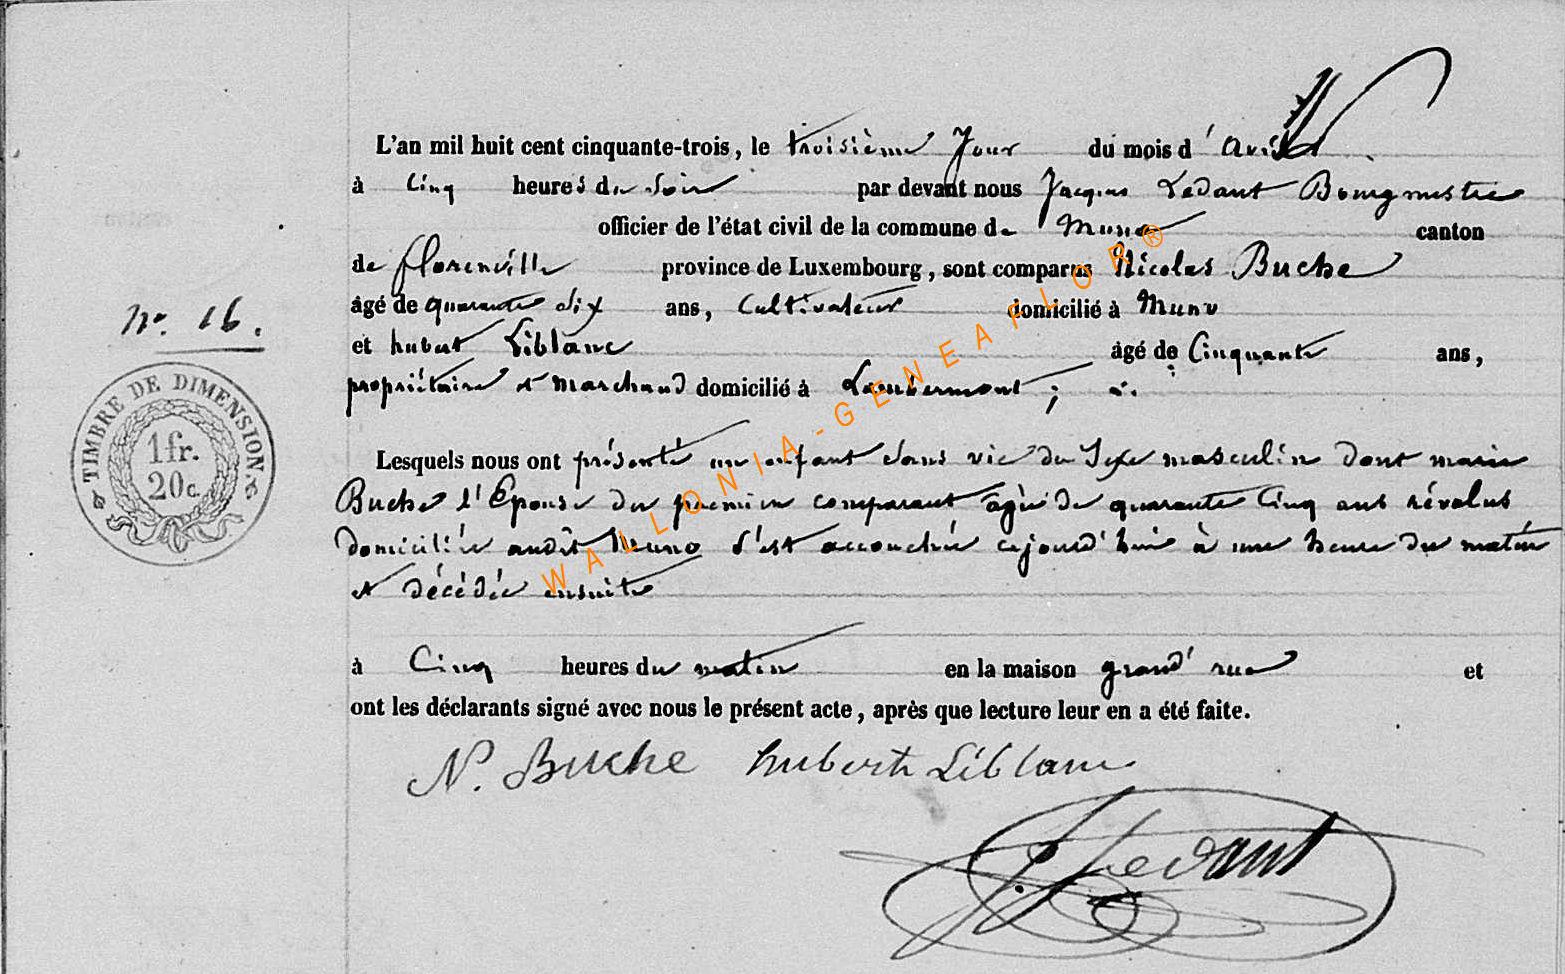 L'an mil huit cent cinquante-trois, le troisième Jour du mois d' Avril
à Cinq heures du Soir par devant nous Jacques Ledant Bourgmestre
officier de l'état civil de la commune de Muno canton
de florenville province de Luxembourg, sont comparus Nicolas Buche
âgé de quarante six ans, Cultivateur domicilié à Muno
No. 16.
et hubert Liblanc âgé de Cinquante ans,
propriétaire et Marchand domicilié à Lambermont ;
TIMBRE DE DIMENSION
1 fr.
20 c.
Lesquels nous ont présenté un enfant sans vie du Sexe masculin dont marie
Buche l'Épouse du premier comparant agée de quarante Cinq ans révolus
domiciliée audit Muno s'est accouchée cejourd'hui à une heure du matin
et décédée ensuite
à Cinq heures du matin en la maison grand' rue et
ont les déclarants signé avec nous le présent acte, après que lecture leur en a été faite.
N. Buche hubert Liblanc
J. Ledant
WALLONIA-GENEAFLOR®